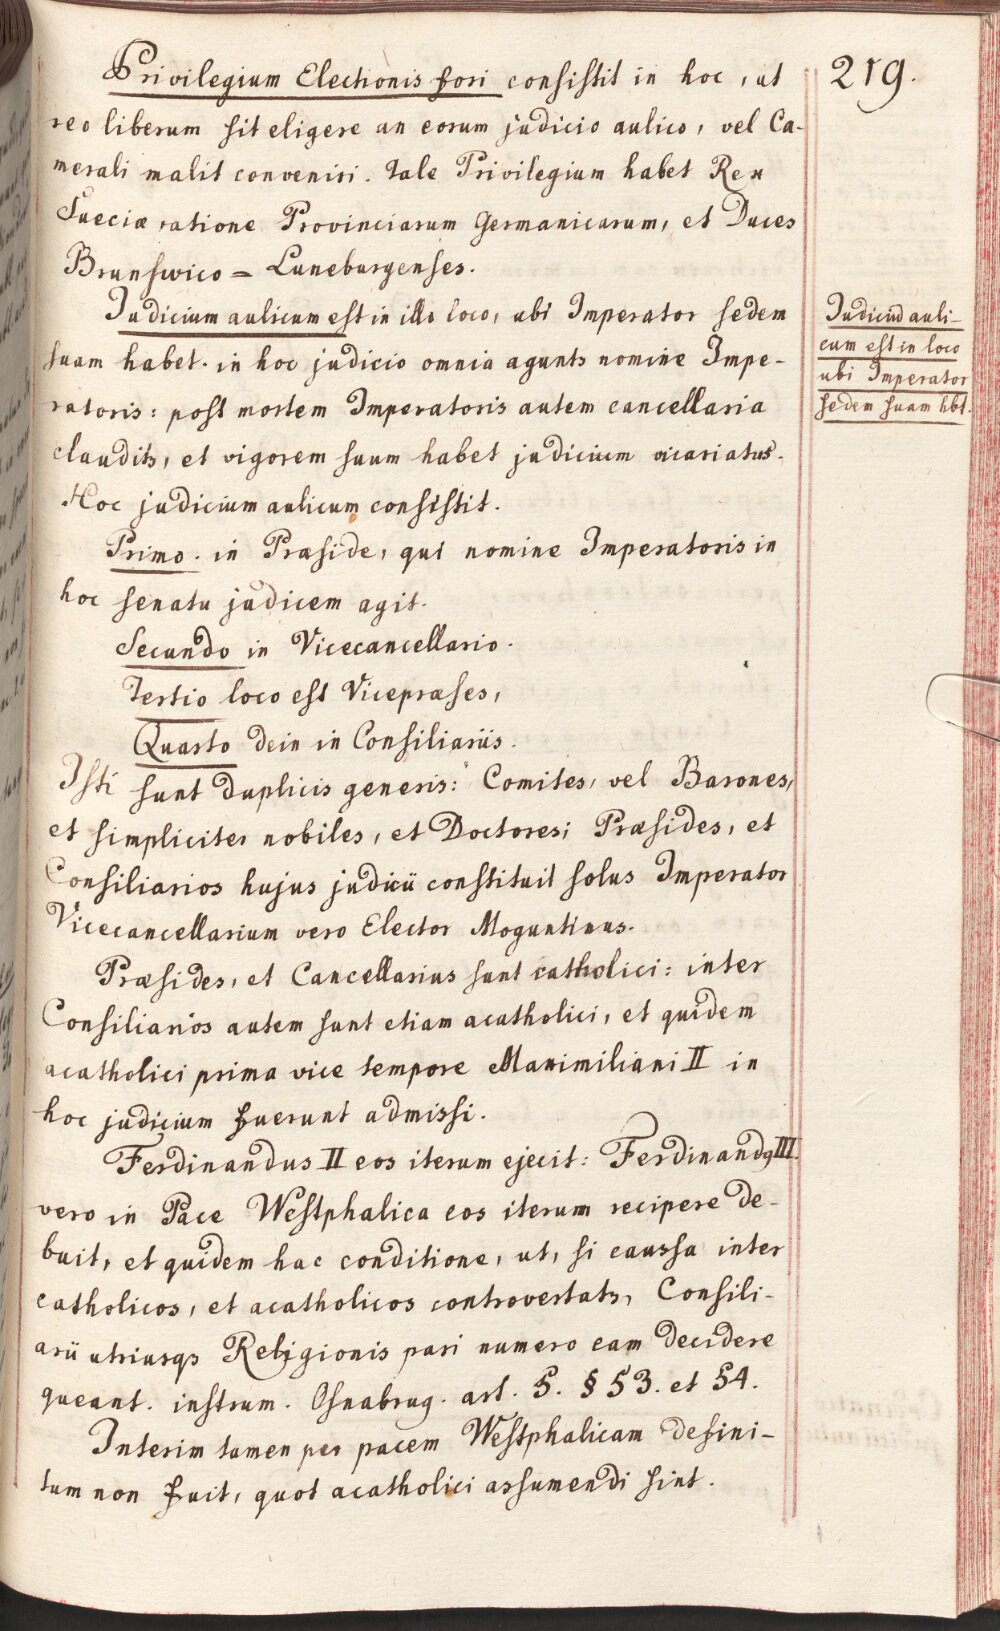 219.
Privilegium Electionis fori consistit in hoc, ut
reo liberum sit eligere an eorum judicio aulico, vel Ca-
merali malit conveniri. Tale Privilegium habet Rex
Sueciæ ratione Provinciarum Germanicarum, et Duces
Brunswico = Luneburgenses.
Judicium aulicum est in illo loco, ubi Imperator sedem
suam habet. in hoc judicio omnia agunts nomine Impe-
ratoris: post mortem Imperatoris autem cancellaria
claudits, et vigorem suum habet judicium vicariatus.
Hoc judicium aulicum consistit.
Primo. in Præside, qui nomine Imperatoris in
hoc senatu judicem agit.
Secundo in Vicecancellario.
Tertio loco est Vicepræses,
Quarto dein in Consiliariis.
Isti sunt duplicis generis: Comites, vel Barones,
et simpliciter nobiles, et Doctores; Præsides, et
Consiliarios hujus judicii constituit solus Imperator
Vicecancellarium vero Elector Moguntinus.
Præsides, et Cancellarius sunt catholici: inter
Consiliarios autem sunt etiam acatholici, et quidem
acatholici prima vice tempore Maximiliani II in
hoc judicium fuerunt admissi.
Ferdinandus II eos iterum ejecit: Ferdinandꝰ III.
vero in Pace Westphalica eos iterum recipere de-
buit, et quidem hac conditione, ut, si caussa inter
catholicos, et acatholicos controvertats, Consili-
arii utriusqs Religionis pari numero eam decidere
queant. instrum. Osnabrug. art. 5. § 53. et 54.
Interim tamen per pacem Westphalicam defini-
tum non fuit, quot acatholici assumendi sint.
Judiciū auli-
cum est in loco
ubi Imperator
sedem suam hbt.